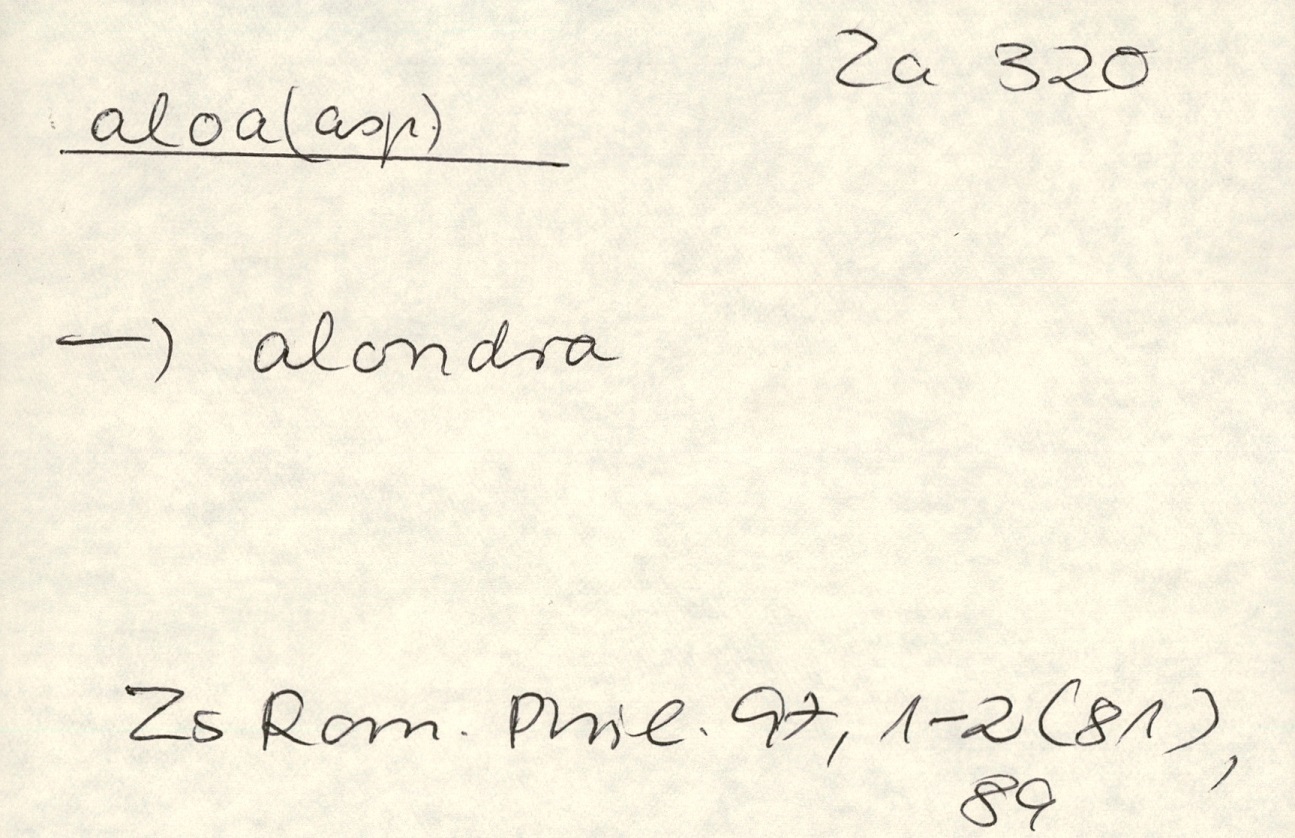 Za 320
aloa (asp.)
→ alondra
Zs Rom. Phil. 97, 1-2 (81),
89